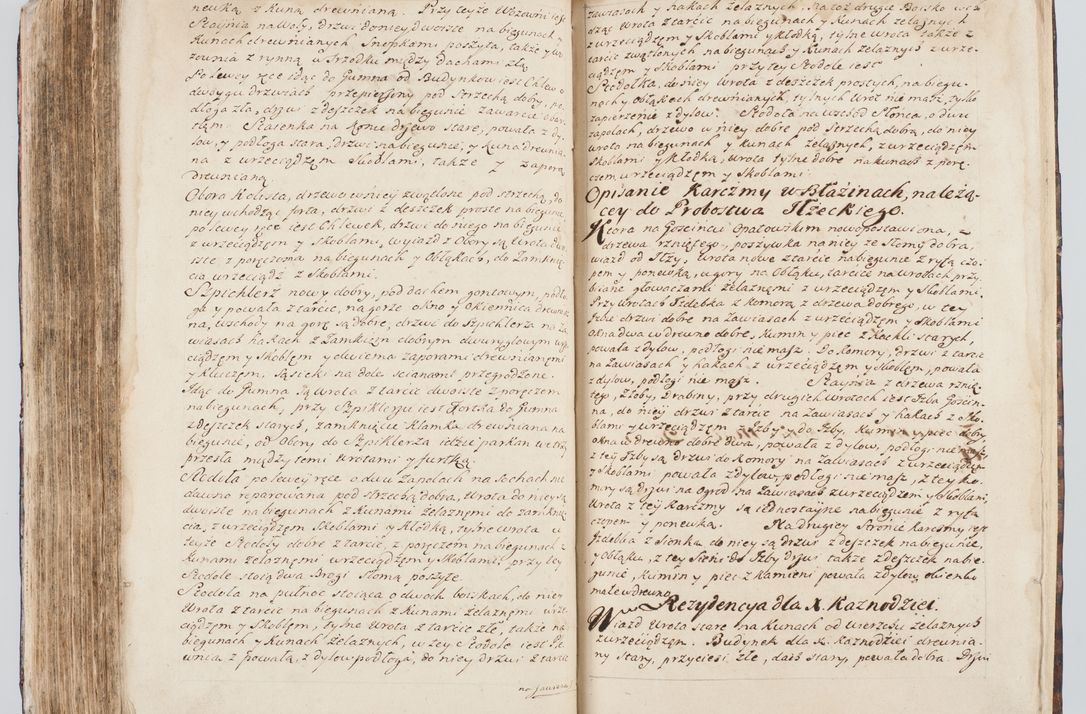 newką z Kuną drewnianą. Przy teyże Wozowni iest
Staynia na Woły, drzwi do niey dwoiste na biegunach y
Kunach drewnianych Snopkami poszyta, także y wo
zownia z rynną w Srzodku między Dachami złą
Po lewey ręce idąc do Gumna od Budynkow iest Chlew o
dwoygu drzwiach przepierzony pod Strzechą dobry, po
dłoga zła, drzwi z deszczek na biegunie zawarcie
Stasienka na Konie drzewo stare, powała z dy
low, y podłoga stara, drzwi na biegunie, y Kuna drewnia
na z wrzeciądzem Skoblami, także y zaporą
drewnianą.
Obora Kolista, drzewo w niey zwątlone pod strzechą, do
niey wchodząc forta, drzwi z deszczek proste na biegunie
po lewey ręce iest Chlewek, drzwi do niego na biegunie
z wrzeciądzem y Skoblami, wyiazd z Obory są Wrota dwo
iste z poręczoma na biegunach y Obląkach, do Zamknię
cia wrzeciądz z Skoblami.
Szpichlerz nowy dobry, pod dachem gontowym, podło
ga y powała z tarcic, na gorze okno y Okiennica drewnia
na, wschody na gorę są dobre, drzwi do Szpichlerza na Za
wiasach hakach z Zamkiem dobrym dwuryglowym wrze
ciądzem y Skoblem y dwiema zaporami drewnianymi
y kluczem, sąsieki na dole scianami przegrodzone.
Idąc do Gumna są wrota z tarcic dwoiste z poręczem
na biegunach, przy Szpiklerzu iest Fortka do Gumna
z deszczek starych, zamknięcie klamka drewniana na
biegunie, od Obory do Szpiklerza idzie parkan we trzy
przęsła między temi Wrotami y furtką.
Stodoła po lewey ręce o dwu Zapolach na Sochach nie
dawno reparowana pod Strzechą dobrą, Wrota do niey są
dwoiste na biegunach z Kunami żelaznymi do zamknię
cia, z wrzeciądzem Skoblami y Kłodką, tylne wrota u
teyże Stodoły dobre z tarcic z poręczem na biegunach z
Kunami żelaznymi wrzeciądzem y Skoblami przy tey
Stodole stoią dwa Brogi Słomą poszyte.
Stodoła na pułnoc stoiąca o dwoch boiskach, do niey
Wrota z tarcic na biegunach z Kunami żelaznymi wrze
ciądzem y Skoblem, tylne Wrota z tarcic złe, także na
biegunach y Kunach żelaznych, w tey Stodole iest Pl
ewnia z powałą, z dylow podłoga, do niey drzwi z tarcic
na zawiasa
zawiasach y hakach żelaznych, na toż drugie Boisko wcho
dząc Wrota z tarcic na biegunach y Kunach żelaznych
z wrzeciądzem y Skoblami y Kłodką, tylne wrota także z
tarcic zwątlonych na biegunach y Kunach żelaznych z wrze
ciądzem y Skoblami przy tey Stodole iest
Stodołka, do niey Wrota z deszczek prostych, na biegu
noch y obląkoch drewnianych, tylnych Wrot nie masz, tylko
zapierzenie z dylow. Stodoła na wschod Słonca, o dwu
zapolach, drzewo w niey dobre pod strzechą dobrą, do niey
wrota na biegunach y kunach żelaznych, z wrzeciądzem
Skoblami y Kłodką, wrota tylne dobre na kunach z porę
czem wrzeciądzem y Skoblami.
Opisanie Karczmy w Błazinach, należą-
cey do Probostwa Iłzeckiego.
Ktora na Goscincu Opatowskim nowo postawiona, z
drzewa rzniętego, poszywka na niey ze Słomy dobra,
wiazd od Iłzy, Wrota nowe z tarcic na biegunie z rytą czo
pem y ponewką, u gory na Obląku, tarcice na wrotach przy
biiane głowaczami żelaznymi z wrzeciądzem y Skoblami.
Przy Wrotach Izdebka z Komorą z drzewa dobrego, w tey
Izbie drzwi dobre na Zawiasach z wrzeciądzem y Skoblami
okna dwa w drewno dobre, Kumin y piec z Kachli starych,
powała z dylow, podłogi nie masz. Do Komory, drzwi z tarcic
na Zawiasach y hakach z wrzeciądzem y Skoblem, powała
z dylow, podłogi nie masz. Staynia z drzewa rznię
tego, Złoby, Drabiny, przy drugich wrotach iest Izba Goscin
na, do niey drzwi z tarcic na Zawiasach y hakach z Sko
blami y wrzeciądzem z Izby y do Izby, Kumin y piec dobry
okna w drewno dobre dwa, powała z dylow, podłogi nie masz,
z tey Izby są drzwi do Komory na Zawiasach z wrzeciądzem
y Skoblami powała z dylow, podłogi nie masz, z tey ko
mory są drzwi na Ogrod na Zawiasach z wrzeciądzem y Skoblami.
Wrota z tey Karczmy są iednostayne na biegunie z rytą
czopem y ponewką. Na drugiey Stronie Karczmy iest
Izdebka z Sienką do niey są drzwi z deszczek na biegunie,
y Obląku, z tey Sieni do Izby drzwi także z deszczek na bie
gunie, kumin y piec z kamieni powała z dylow, okienko
małe w drewno.
Rezydencya dla X. Kaznodziei.
Wiazd wrota stare na Kunach od wierzchu żelaznych
z wrzeciądzem. Budynek dla X. Kaznodziei drewnia-
ny stary, przyciesi złe, dach stary, powała dobra. Drzwi